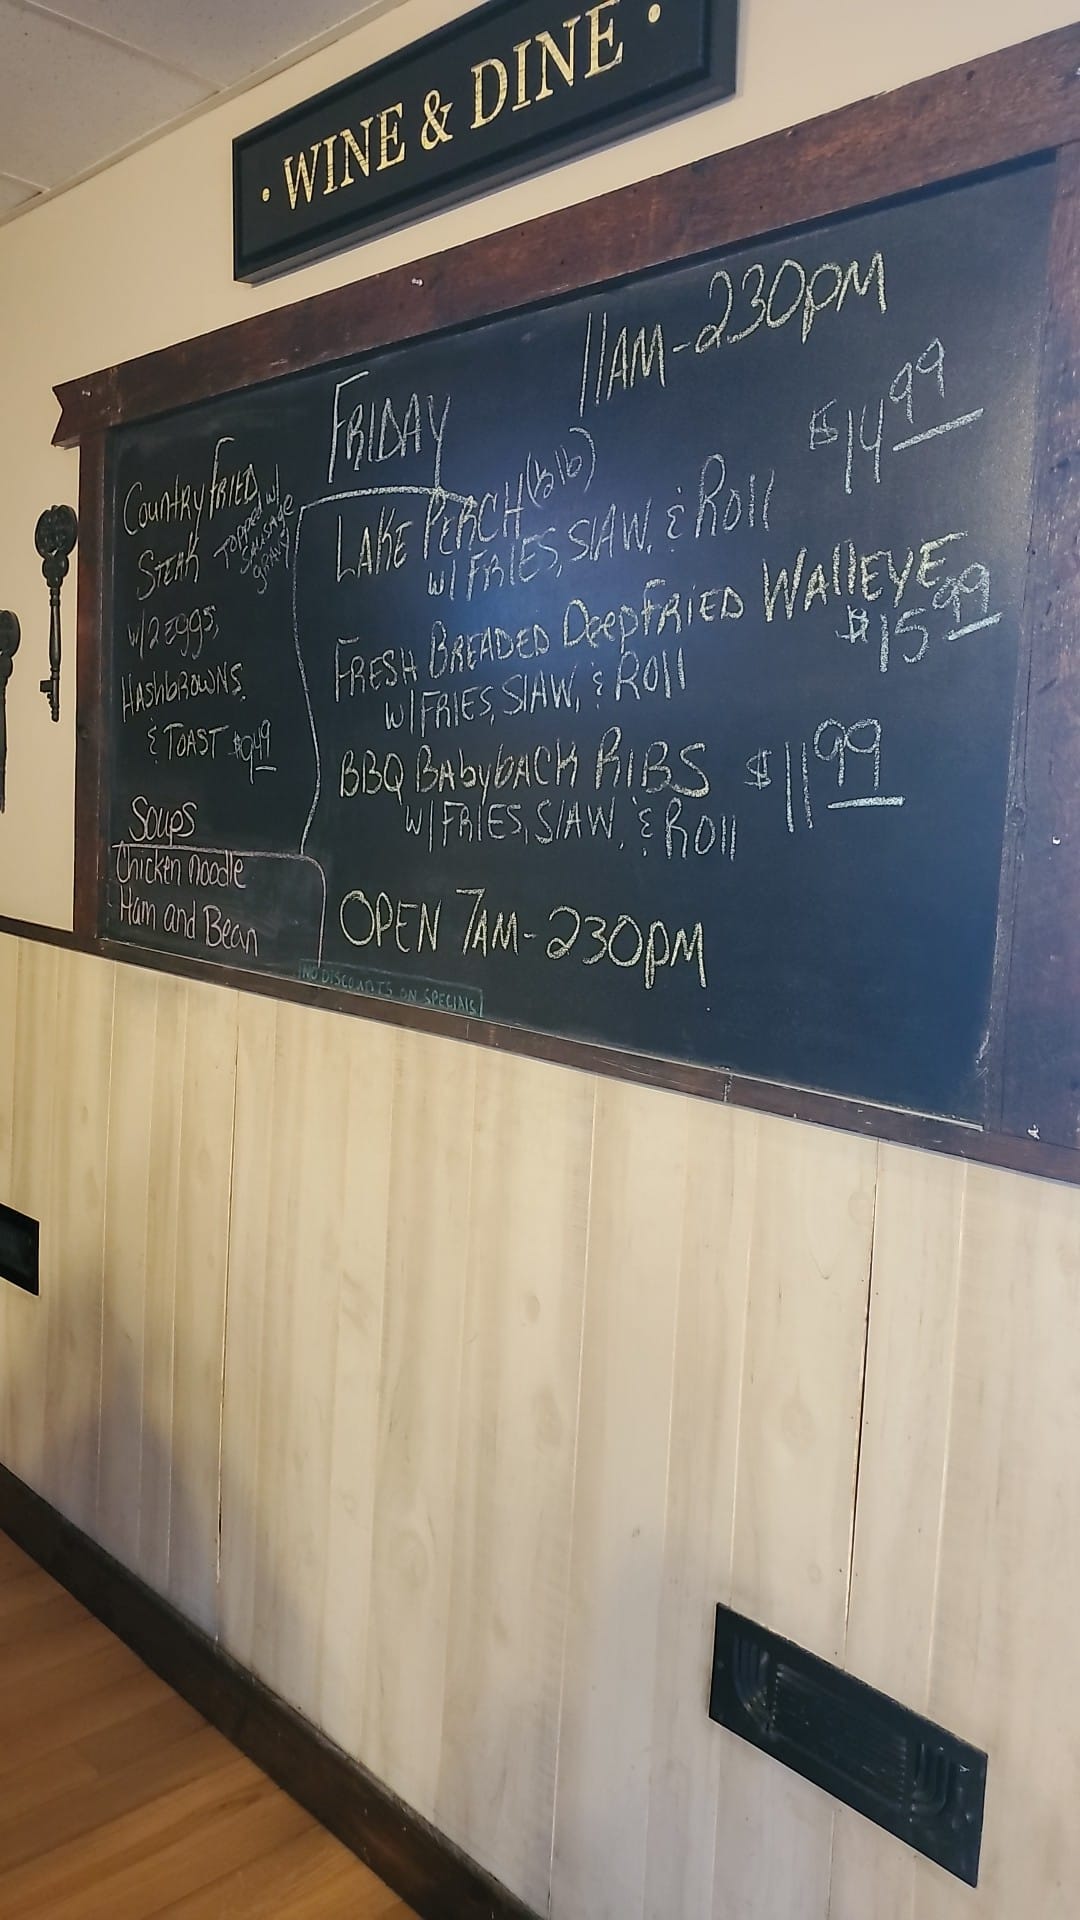 • WINE & DINE •
11AM-230PM
FRIDAY
COUNTRY FRIED
STEAK
TOPPED w/
SAUSAGE
gRAVY
w/2 Eggs,
HASHbROWNS,
& TOAST $9.49
Soups
Chicken noodle
Ham and Bean
LAKE PERCH (½lb) $14.99
w/ FRIES, SlAW, & ROll
FRESH BREADED DeepFRIED WAllEYE
$15.99
w/ FRIES, SlAW, & ROll
BBQ BAbybACK RIBS $11.99
w/ FRIES, SlAW, & ROll
OPEN 7AM-230PM
NO DISCOUNTS ON SPECIAlS